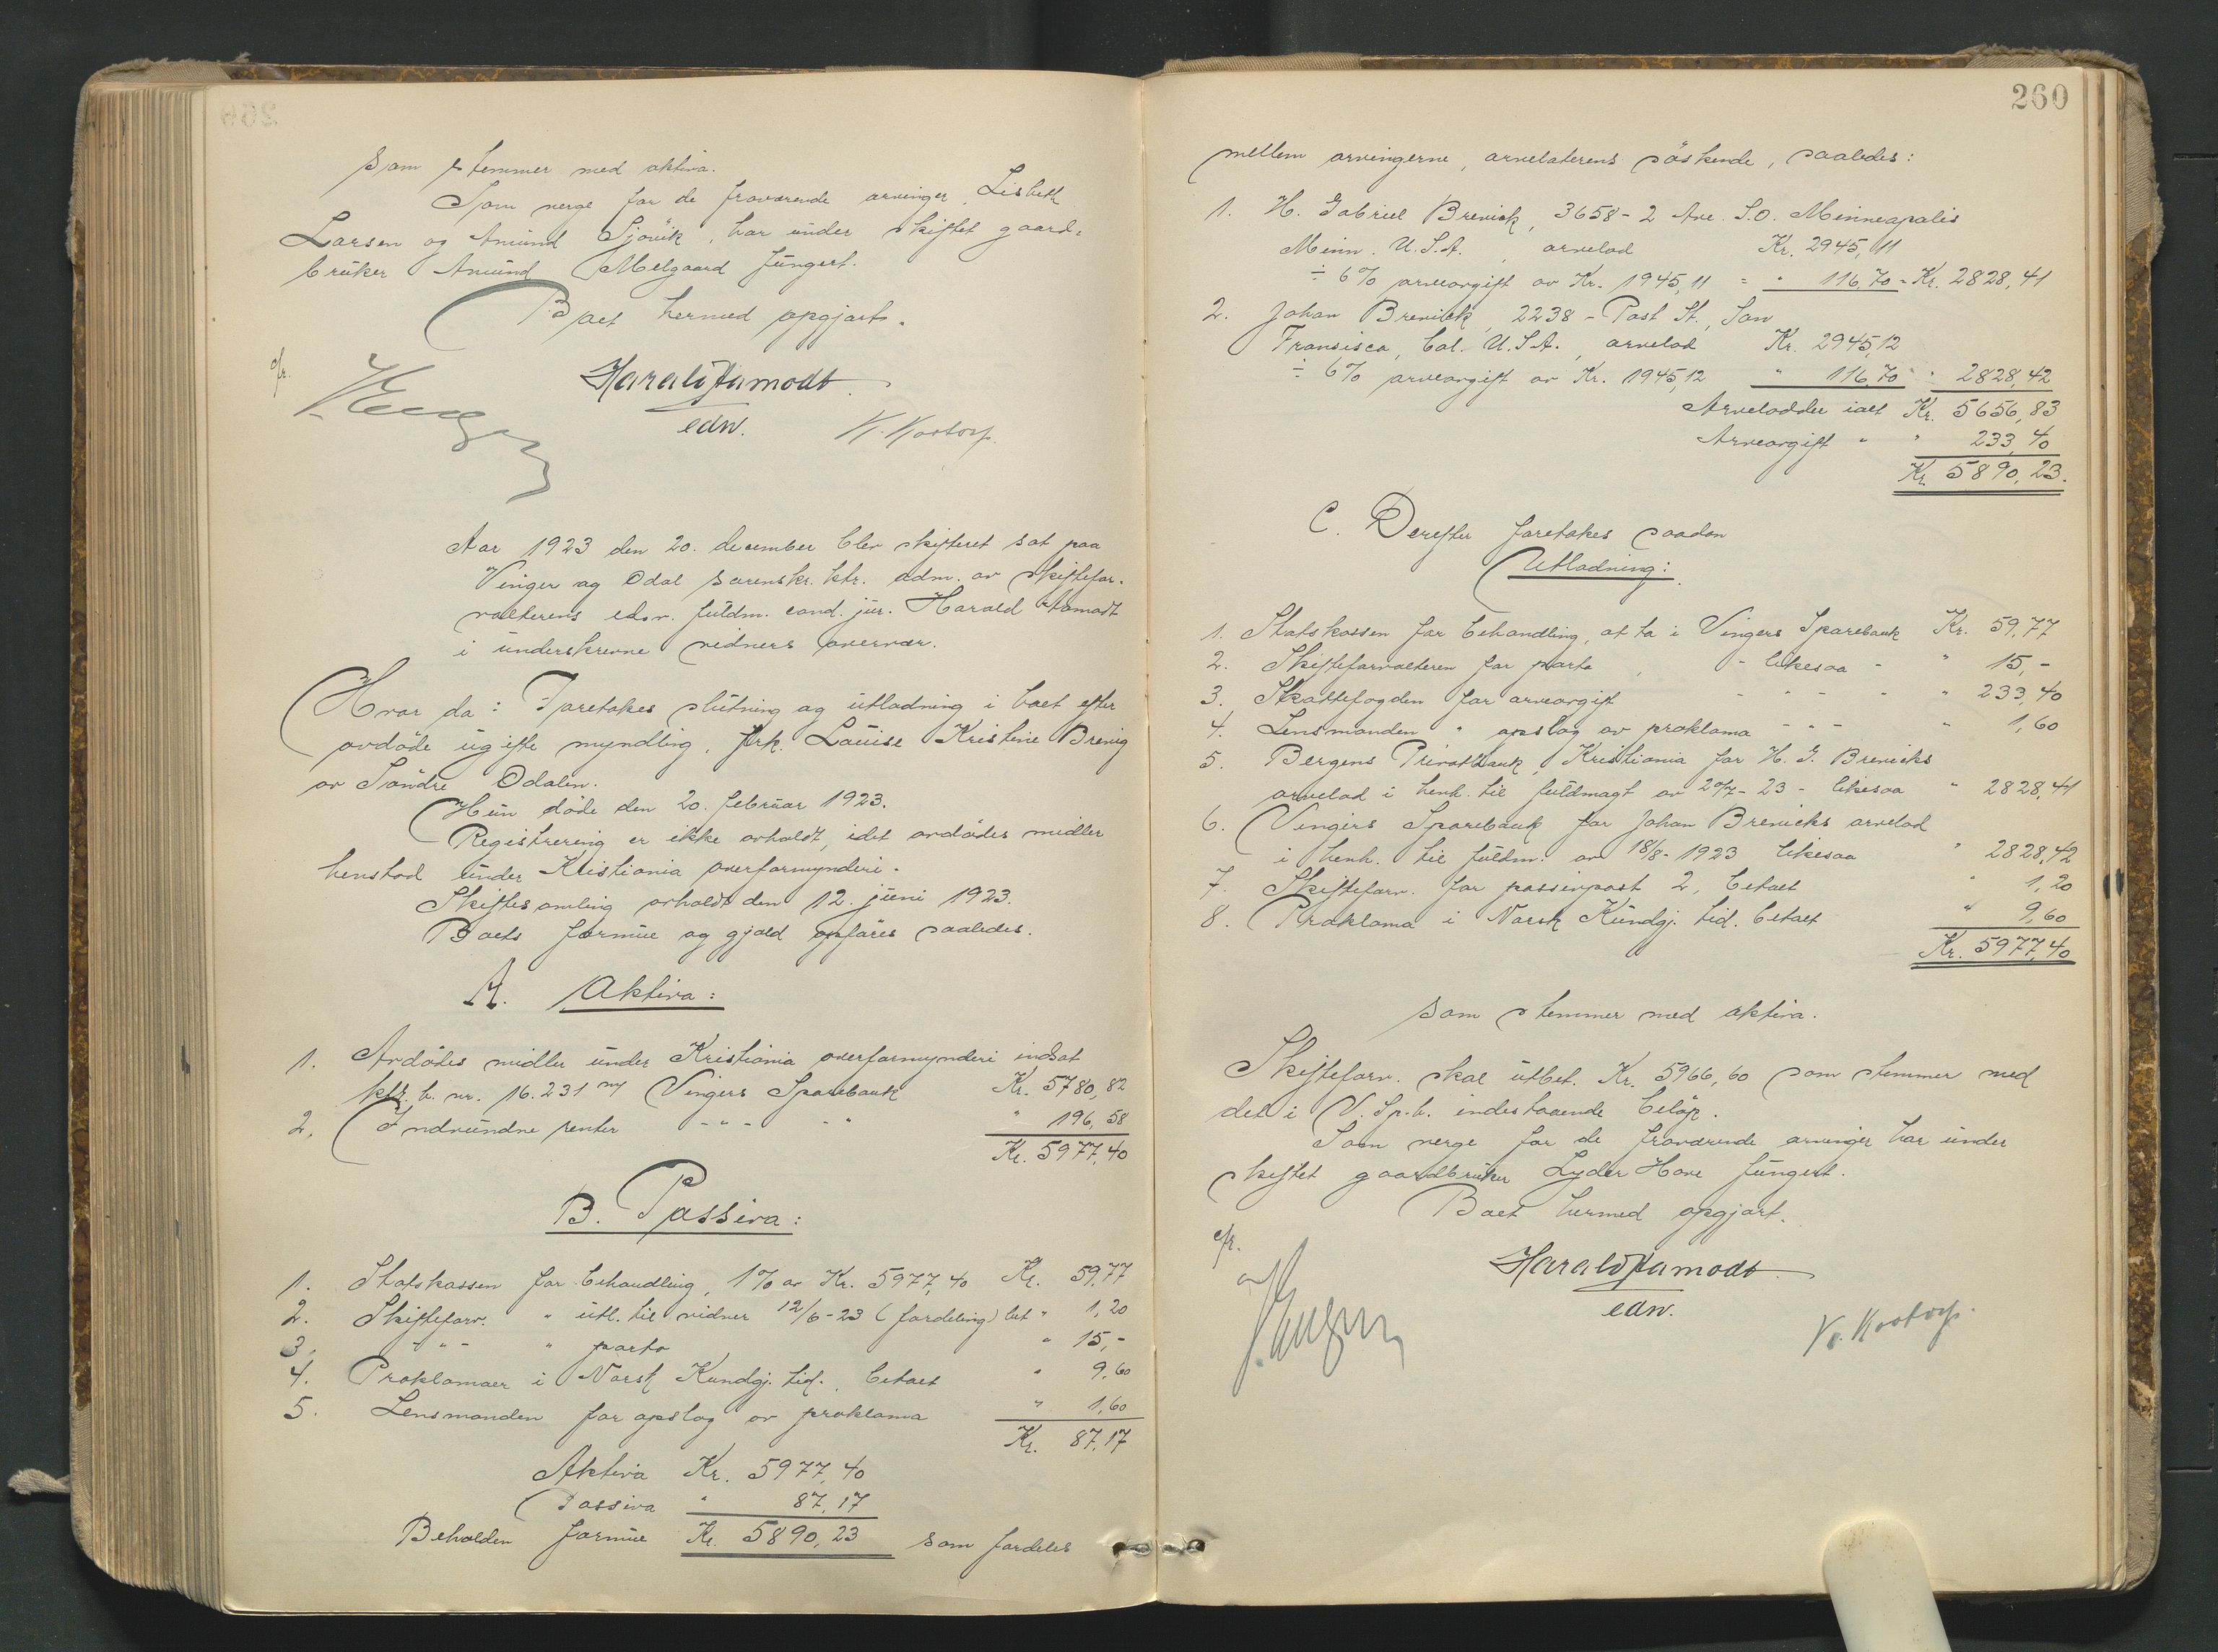 som stemmer med aktiva.
Som verge for de fraværende arvinger, Lisbeth
Larsen og Amund Sjövik, har under skiftet gaard-
bruker Amund Melgaard fungert.
Boet hermed opgjort.
cfr.
Harald Aamodt
edsv.
K. Kostorp.
Aar 1923 den 20. december blev skifteret sat paa
Vinger og Odal sorenskr. ktr. adm. av skiftefor-
valterens edsv. fuldm. cand. jur. Harald Aamodt
i underskrevne vidners overvær.
Hvor da: Foretokes slutning og utlodning i boet efter
avdöde ugifte myndling, frk. Louise Kristine Brevig
av Söndre Odalen.
Hun döde den 20. februar 1923.
Registrering er ikke avholdt, idet avdödes midler
henstod under Kristiania overformynderi.
Skiftesamling avholdt den 12. juni 1923.
Boets formue og gjæld opföres saaledes.
A. Aktiva:
1. Avdödes midler under Kristiania overformynderi indsat
ktr. b. nr. 16.231 ny Vingers Sparebank Kr. 5780,82
2. Indvundne renter - " - " " 196,58
Kr. 5977,40
B. Passiva:
1. Statskassen for behandling, 1% av Kr. 5977,40 Kr. 59,77
2. Skifteforv. " utl. til vidner 12/6-23 (fordeling) bet " 1,20
3. - " - " porto " 15,-
4. Proklamaer i Norsk Kundgj. tid. betalt " 9,60
5. Lensmanden for opslag av proklama " 1,60
Kr. 87,17
Aktiva Kr. 5977,40
Passiva " 87,17
Beholden formue Kr. 5890,23 som fordeles
260
mellem arvingerne, arvelaterens söskende, saaledes:
1. H. Gabriel Brevick, 3658 - 2 Ave. S.O. Minneapolis
Minn. U.S.A., arvelod Kr. 2945,11
÷ 6% arveavgift av Kr. 1945,11 = " 116,70 = Kr. 2828,41
2. Johan Brevick, 2238 - Post St., San
Fransisco, Cal. U.S.A., arvelod Kr. 2945,12
÷ 6% arveavgift av Kr. 1945,12 " 116,70 " 2828,42
Arvelodder ialt Kr. 5656,83
Arveavgift " " 233,40
Kr. 5890,23.
C. Derefter foretokes saadan
Utlodning:
1. Statskassen for behandling, at ta i Vingers Sparebank Kr. 59,77
2. Skifteforvalteren for porto, - likesaa - " 15,-
3. Skattefogden for arveavgift - " - " - " 233,40
4. Lensmanden " opslag av proklama - " - " 1,60
5. Bergens Privatbank, Kristiania for H. G. Brevicks
arvelod i henh. til fuldmagt av 20/7-23 - likesaa " 2828,41
6. Vingers Sparebank for Johan Brevicks arvelod
i henh. til fuldm. av 18/8-1923 likesaa " 2828,42
7. Skifteforv. for passivpost 2, betalt " 1,20
8. Proklama i Norsk Kundgj. tid. betalt " 9,60
Kr. 5977,40
som stemmer med aktiva.
Skifteforv. skal utbet. Kr. 5966,60 som stemmer med
det i V. Sp.b. indestaaende belöp.
Som verge for de fraværende arvinger har under
skiftet gaardbruker Lyder Hove fungert.
Boet hermed opgjort.
cfr.
Harald Aamodt
edsv.
K. Kostorp.